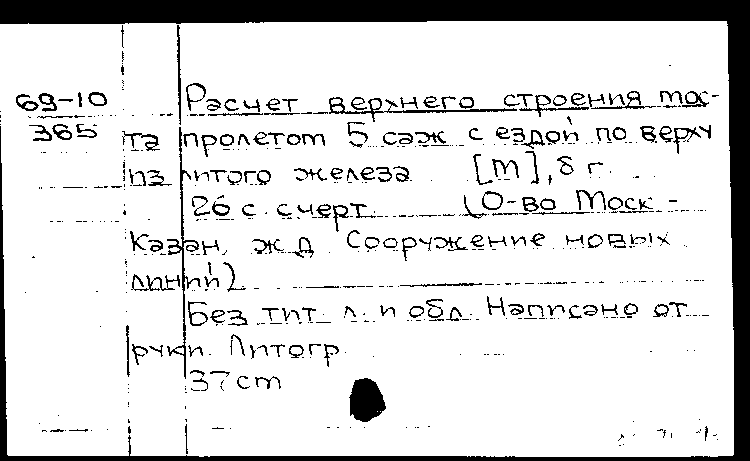 69-10 Расчет верхнего строения мос-
365 та пролетом 5 саж с ездой по верху
из литого железа [М], б г.
26 с. с черт. (О-во Моск-
Казан. ж.д. Сооружение новых
линий)
Без тит. л. и обл. Написано от
руки. Литогр.
37 cm